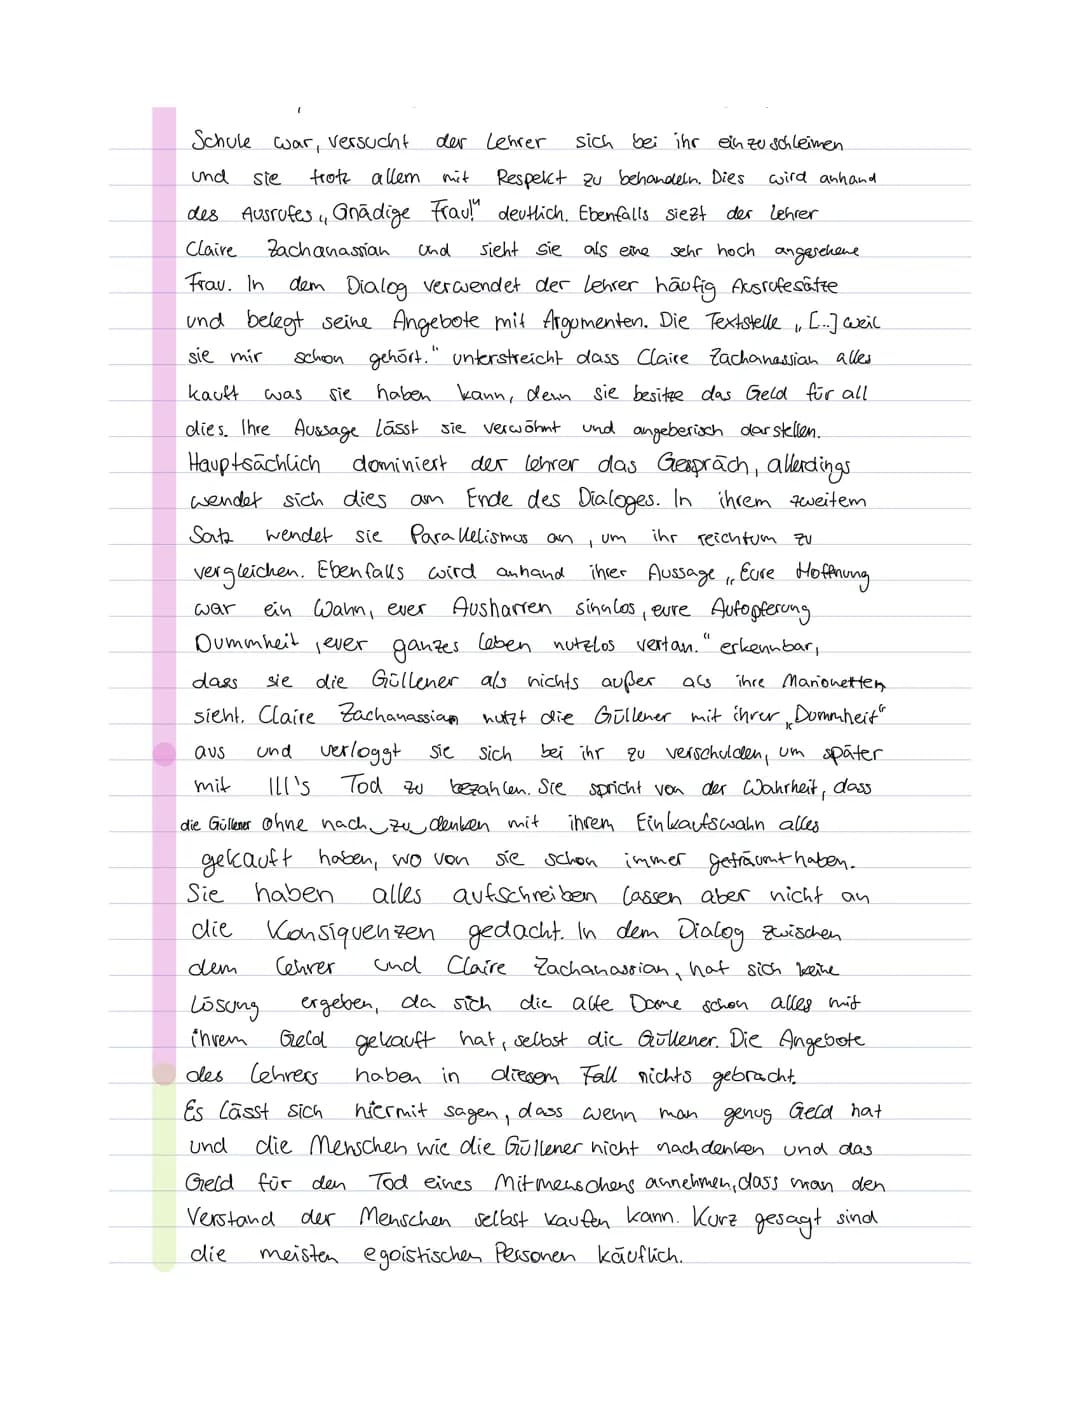 Schule war, versucht der Lehrer sich bei ihr ein zu schleimen
und sie trotz allem mit Respekt zu behandeln. Dies wird anhand
des Ausrufes „Gnädige Frau!" deutlich. Ebenfalls siezt der Lehrer
Claire Zachanassian und sieht sie als eine sehr hoch angesehene
Frau. In dem Dialog verwendet der Lehrer häufig Ausrufesätze
und belegt seine Angebote mit Argumenten. Die Textstelle „[...] weil
sie mir schon gehört." unterstreicht dass Claire Zachanassian alles
kauft was sie haben kann, denn sie besitze das Geld für all
dies. Ihre Aussage lässt sie verwöhnt und angeberisch darstellen.
Hauptsächlich dominiert der Lehrer das Gespräch, allerdings
wendet sich dies am Ende des Dialoges. In ihrem zweitem
Satz wendet sie Parallelismus an, um ihr reichtum zu
vergleichen. Ebenfalls wird anhand ihrer Aussage „Eure Hoffnung
war ein Wahn, euer Ausharren sinnlos, eure Aufopferung
Dummheit, euer ganzes Leben nutzlos vertan." erkennbar,
dass sie die Güllener als nichts außer als ihre Marionetten
sieht. Claire Zachanassian nutzt die Güllener mit ihrer „Dummheit"
aus und verloggt sie sich bei ihr zu verschulden, um später
mit Ill's Tod zu bezahlen. Sie spricht von der Wahrheit, dass
die Güllener ohne nach zu denken mit ihrem Einkaufswahn alles
gekauft haben, wo von sie schon immer geträumt haben.
Sie haben alles aufschreiben lassen aber nicht an
die Konsiquenzen gedacht. In dem Dialog zwischen
dem Lehrer und Claire Zachanassian, hat sich keine
Lösung ergeben, da sich die alte Dame schon alles mit
ihrem Geld gekauft hat, selbst die Güllener. Die Angebote
des Lehrers haben in diesem Fall nichts gebracht.
Es lässt sich hiermit sagen, dass wenn man genug Geld hat
und die Menschen wie die Güllener nicht nachdenken und das
Geld für den Tod eines Mitmenschens annehmen, dass man den
Verstand der Menschen selbst kaufen kann. Kurz gesagt sind
die meisten egoistischen Personen käuflich.